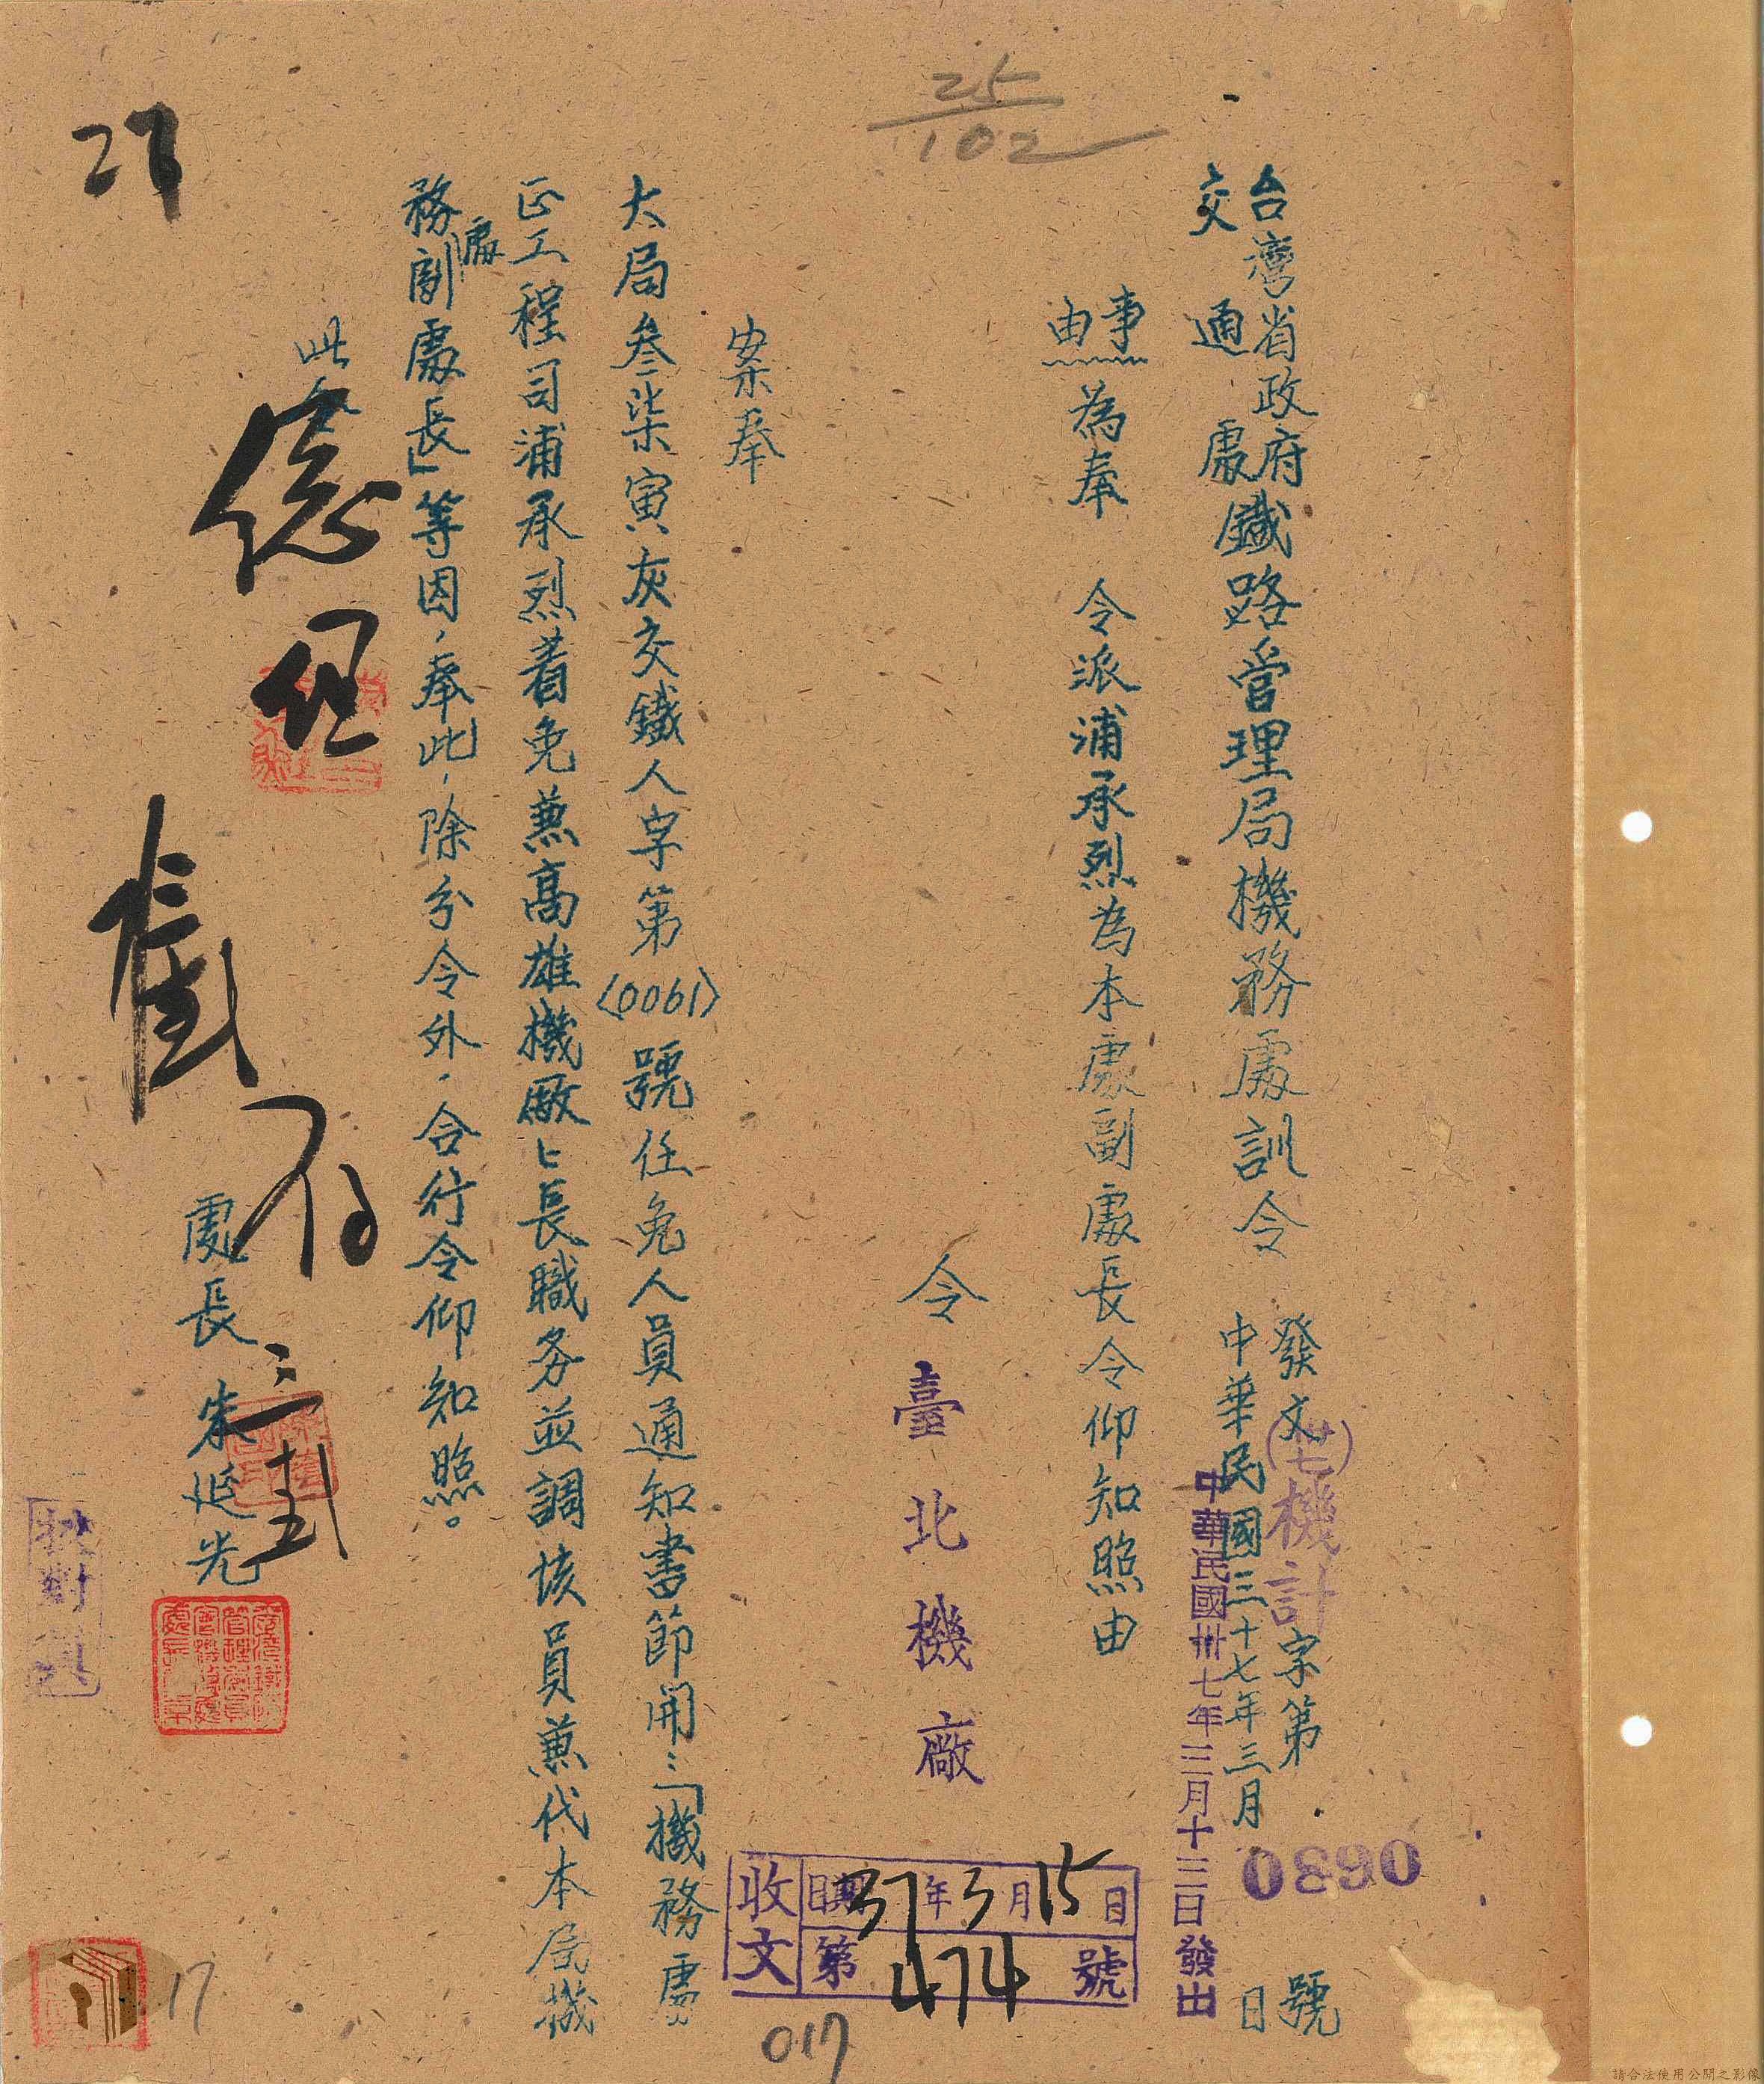 25
102
台灣省政府
交通處
鐵路管理局機務處訓令
發文(卅七)機計字第0890號
中華民國三十七年三月 日
中華民國卅七年三月十三日發出
事由
為奉 令派浦承烈為本處副處長令仰知照由
令臺北機廠
收文
日期37年3月15日
第474號
案奉
大局叁柒寅灰交鐵人字第(0061)號任免人員通知書節開:「機務處
正工程司浦承烈着免兼高雄機廠廠長職务並調該員兼代本局機
務處副處長」等因,奉此,除分令外,合行令仰知照。
此令
處長 朱延光
校對員
存
27
17
017
請合法使用公開之影像